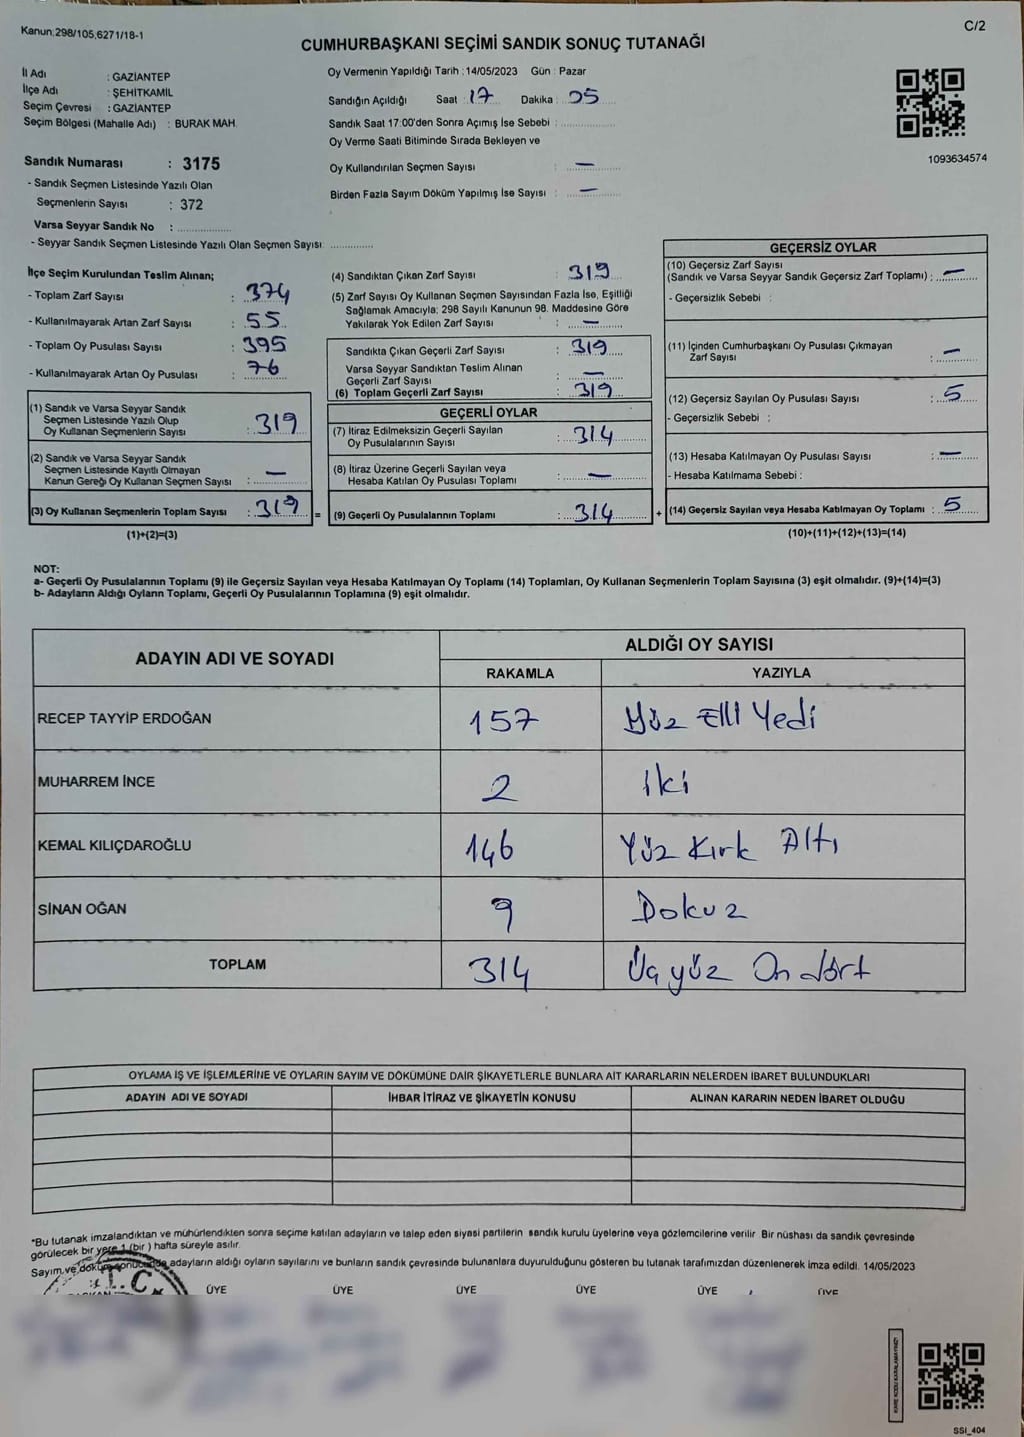 Kanun;298/105,6271/18-1
C/2
CUMHURBAŞKANI SEÇİMİ SANDIK SONUÇ TUTANAĞI
İl Adı : GAZİANTEP
İlçe Adı : ŞEHİTKAMİL
Seçim Çevresi : GAZİANTEP
Seçim Bölgesi (Mahalle Adı) : BURAK MAH.
Oy Vermenin Yapıldığı Tarih : 14/05/2023 Gün : Pazar
Sandığın Açıldığı Saat : 17 Dakika : 05
Sandık Saat 17:00'den Sonra Açımış İse Sebebi :
Oy Verme Saati Bitiminde Sırada Bekleyen ve
Oy Kullandırılan Seçmen Sayısı : —
Birden Fazla Sayım Döküm Yapılmış İse Sayısı : —
1093634574
Sandık Numarası : 3175
- Sandık Seçmen Listesinde Yazılı Olan
Seçmenlerin Sayısı : 372
Varsa Seyyar Sandık No :
- Seyyar Sandık Seçmen Listesinde Yazılı Olan Seçmen Sayısı:
İlçe Seçim Kurulundan Teslim Alınan;
- Toplam Zarf Sayısı : 374
- Kullanılmayarak Artan Zarf Sayısı : 55
- Toplam Oy Pusulası Sayısı : 395
- Kullanılmayarak Artan Oy Pusulası : 76
(1) Sandık ve Varsa Seyyar Sandık
Seçmen Listesinde Yazılı Olup
Oy Kullanan Seçmenlerin Sayısı : 319
(2) Sandık ve Varsa Seyyar Sandık
Seçmen Listesinde Kayıtlı Olmayan
Kanun Gereği Oy Kullanan Seçmen Sayısı : —
(3) Oy Kullanan Seçmenlerin Toplam Sayısı : 319 =
(1)+(2)=(3)
(4) Sandıktan Çıkan Zarf Sayısı : 319
(5) Zarf Sayısı Oy Kullanan Seçmen Sayısından Fazla İse, Eşitliği
Sağlamak Amacıyla; 298 Sayılı Kanunun 98. Maddesine Göre
Yakılarak Yok Edilen Zarf Sayısı : —
Sandıkta Çıkan Geçerli Zarf Sayısı : 319
Varsa Seyyar Sandıktan Teslim Alınan
Geçerli Zarf Sayısı : —
(6) Toplam Geçerli Zarf Sayısı : 319
GEÇERLİ OYLAR
(7) İtiraz Edilmeksizin Geçerli Sayılan
Oy Pusulalarının Sayısı : 314
(8) İtiraz Üzerine Geçerli Sayılan veya
Hesaba Katılan Oy Pusulası Toplamı : —
(9) Geçerli Oy Pusulalarının Toplamı : 314 +
GEÇERSİZ OYLAR
(10) Geçersiz Zarf Sayısı
(Sandık ve Varsa Seyyar Sandık Geçersiz Zarf Toplamı) : —
- Geçersizlik Sebebi :
(11) İçinden Cumhurbaşkanı Oy Pusulası Çıkmayan
Zarf Sayısı : —
(12) Geçersiz Sayılan Oy Pusulası Sayısı : 5
- Geçersizlik Sebebi :
(13) Hesaba Katılmayan Oy Pusulası Sayısı : —
- Hesaba Katılmama Sebebi :
(14) Geçersiz Sayılan veya Hesaba Katılmayan Oy Toplamı : 5
(10)+(11)+(12)+(13)=(14)
NOT:
a- Geçerli Oy Pusulalarının Toplamı (9) ile Geçersiz Sayılan veya Hesaba Katılmayan Oy Toplamı (14) Toplamları, Oy Kullanan Seçmenlerin Toplam Sayısına (3) eşit olmalıdır. (9)+(14)=(3)
b- Adayların Aldığı Oyların Toplamı, Geçerli Oy Pusulalarının Toplamına (9) eşit olmalıdır.
ADAYIN ADI VE SOYADI
ALDIĞI OY SAYISI
RAKAMLA YAZIYLA
RECEP TAYYİP ERDOĞAN 157 Yüz Elli Yedi
MUHARREM İNCE 2 İki
KEMAL KILIÇDAROĞLU 146 Yüz Kırk Altı
SİNAN OĞAN 9 Dokuz
TOPLAM 314 Üçyüz On dört
OYLAMA İŞ VE İŞLEMLERİNE VE OYLARIN SAYIM VE DÖKÜMÜNE DAİR ŞİKAYETLERLE BUNLARA AİT KARARLARIN NELERDEN İBARET BULUNDUKLARI
ADAYIN ADI VE SOYADI İHBAR İTİRAZ VE ŞİKAYETİN KONUSU ALINAN KARARIN NEDEN İBARET OLDUĞU
*Bu tutanak imzalandıktan ve mühürlendikten sonra seçime katılan adayların ve talep eden siyasi partilerin sandık kurulu üyelerine veya gözlemcilerine verilir. Bir nüshası da sandık çevresinde
görülecek bir yere 1 (bir ) hafta süreyle asılır.
Sayım ve döküm sonucunda adayların aldığı oyların sayılarını ve bunların sandık çevresinde bulunanlara duyurulduğunu gösteren bu tutanak tarafımızdan düzenlenerek imza edildi. 14/05/2023
T.C.
ÜYE ÜYE ÜYE ÜYE ÜYE ÜYE
KARE KODU KARALAMAYINIZ!
SSI_404